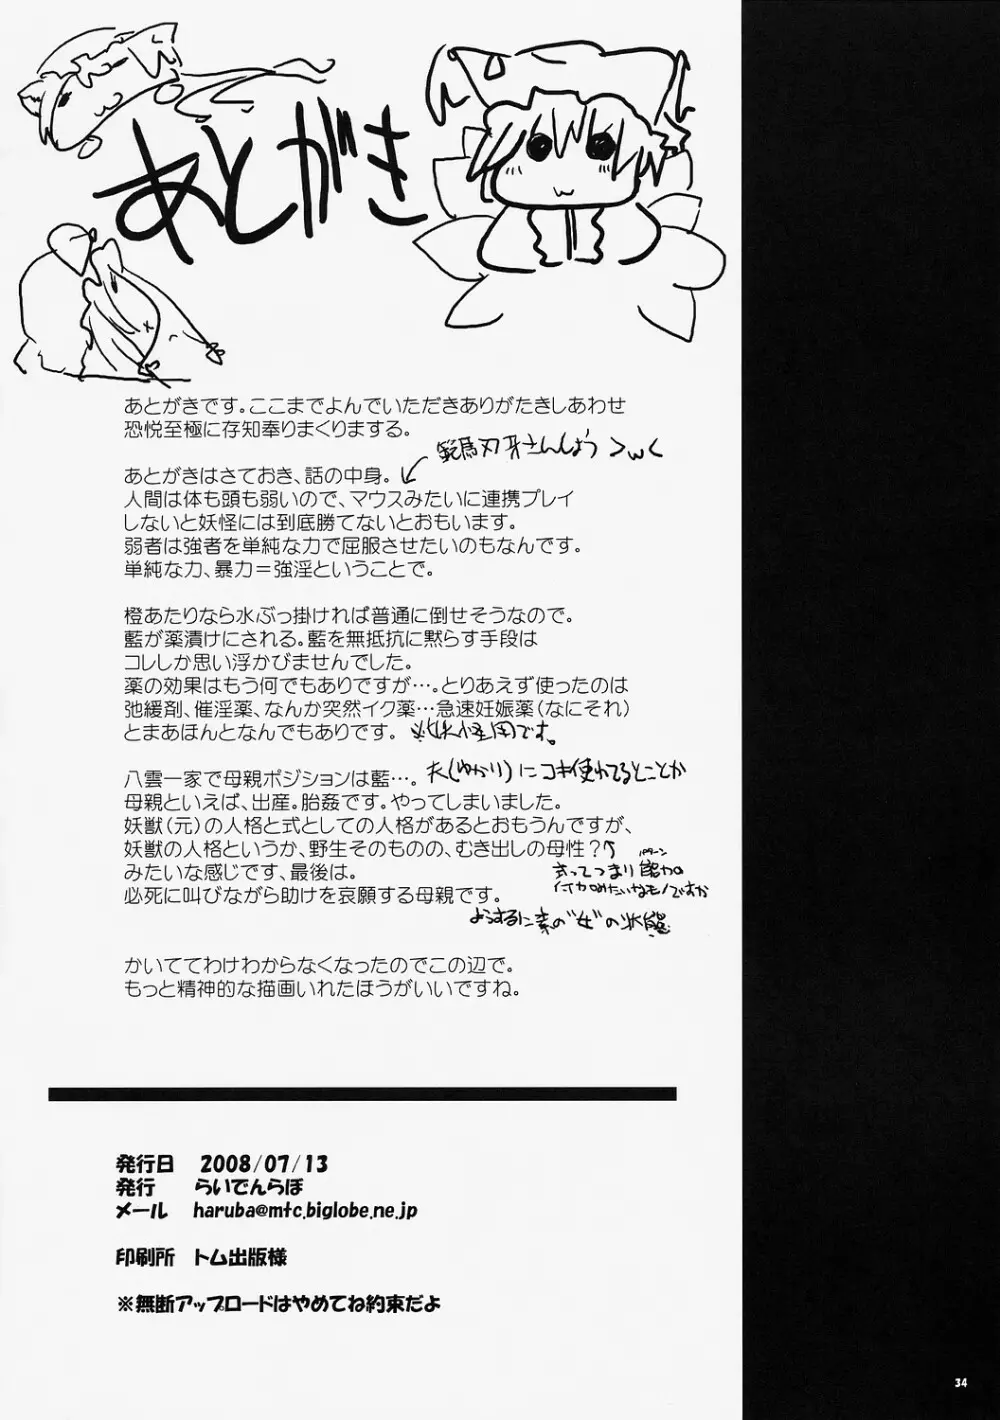 あとがき
あとがきです。ここまでよんでいただきありがたきしあわせ
恐悦至極に存知奉りまくりまする。
範馬刃牙さんしょう >w<
あとがきはさておき、話の中身。
人間は体も頭も弱いので、マウスみたいに連携プレイ
しないと妖怪には到底勝てないとおもいます。
弱者は強者を単純な力で屈服させたいのもなんです。
単純な力、暴力＝強淫ということで。
橙あたりなら水ぶっ掛ければ普通に倒せそうなので。
藍が薬漬けにされる。藍を無抵抗に黙らす手段は
コレしか思い浮かびませんでした。
薬の効果はもう何でもありですが…。とりあえず使ったのは
弛緩剤、催淫薬、なんか突然イク薬…急速妊娠薬（なにそれ）
とまあほんとなんでもありです。 ※妖怪用です。
八雲一家で母親ポジションは藍…。 夫(ゆかり)にコキ使われてるとことか
母親といえば、出産。胎姦です。やってしまいました。
妖獣（元）の人格と式としての人格があるとおもうんですが、
妖獣の人格というか、野生そのものの、むき出しの母性？
みたいな感じです、最後は。
必死に叫びながら助けを哀願する母親です。
パターン
式ってつまり能力の
付加みたいなモノですか
ようするに素の"女"の状態
かいててわけわからなくなったのでこの辺で。
もっと精神的な描画いれたほうがいいですね。
発行日 2008/07/13
発行 らいでんらぼ
メール haruba@mtc.biglobe.ne.jp
印刷所 トム出版様
※無断アップロードはやめてね約束だよ
34